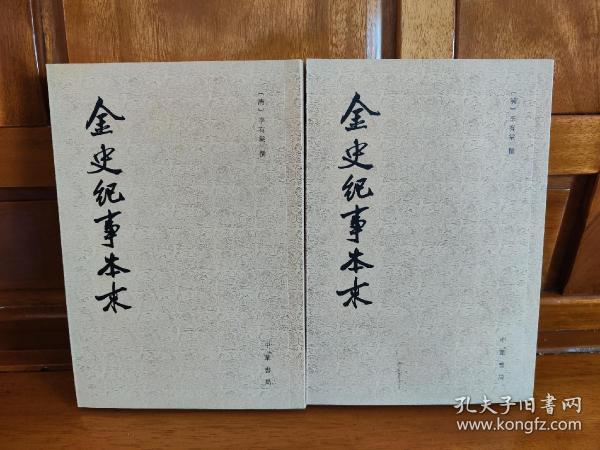 金史纪事本末
〔清〕李有棠 撰
中华书局
金史纪事本末
〔清〕李有棠 撰
中华书局
孔夫子旧书网
www.kongfz.com